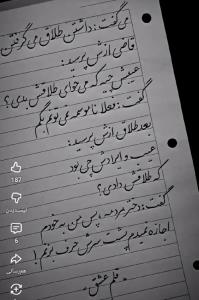 می گفت: داشتن طلاق می گرفتن
قاضی ازش پرسید:
عیبش چیه که می خوای طلاقش بدی؟
گفت: فعلا ناموسمه نمی تونم بگم
بعد طلاق ازش پرسید:
عیب و ایرادش چی بود
که طلاقش دادی؟
گفت: دختر مردمه، پس من به خودم
اجازه نمیدم پشت سرش حرف بزنم!
187
نپسندیدن
6
هم‌رسانی